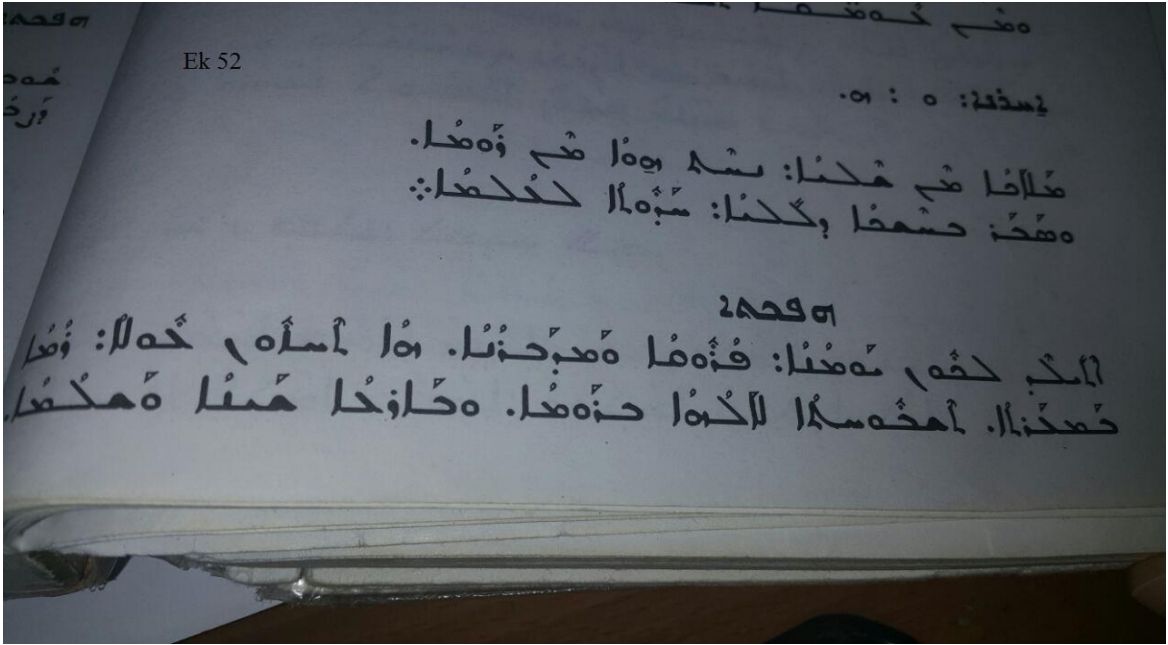 ܐܚܪܢܐ: ܘ : ܗ.
ܡܰܠܐܟܳܐ ܡܶܢ ܫܶܠܝܳܐ: ܢܚܶܬ ܗ̱ܘܳܐ ܡܶܢ ܪܰܘܡܳܐ.
ܘܣܰܒܰܪ ܒܚܶܫܟܳܐ ܕܠܺܠܝܳܐ: ܚܰܕܽܘܬܐ ܠܥܳܠܡܳܐ܀
ܗܦܟܬܐ
ܐܶܬܝܺܠܶܕ ܠܟܽܘܢ ܝܰܘܡܳܢܳܐ: ܦܳܪܽܘܩܳܐ ܘܰܡܕܰܒܪܳܢܳܐ. ܗܳܐ ܬܶܚܙܽܘܢ ܥܽܘܠܐ: ܪܳܡܶܐ
ܒܰܡܥܰܪܬܐ. ܬܶܫܒܽܘܚܬܳܐ ܠܐܰܠܳܗܳܐ ܒܪܰܘܡܳܐ. ܘܒܰܐܪܥܳܐ ܫܰܝܢܳܐ ܘܰܫܠܳܡܳܐ.
Ek 52